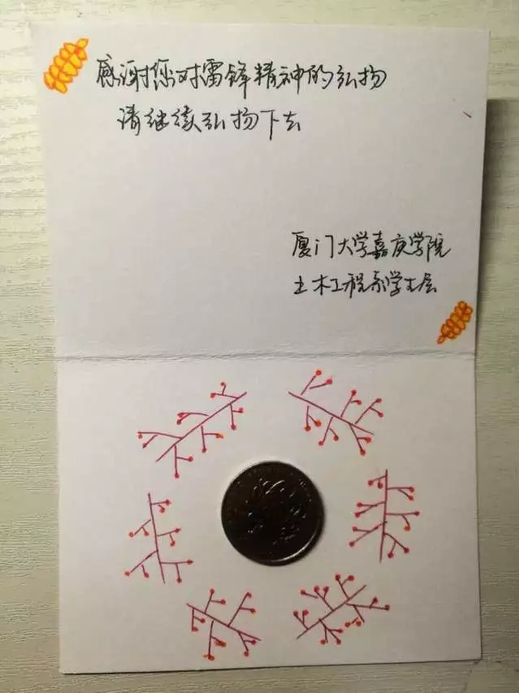 感谢您对雷锋精神的弘扬
请继续弘扬下去
厦门大学嘉庚学院
土木工程系学生会